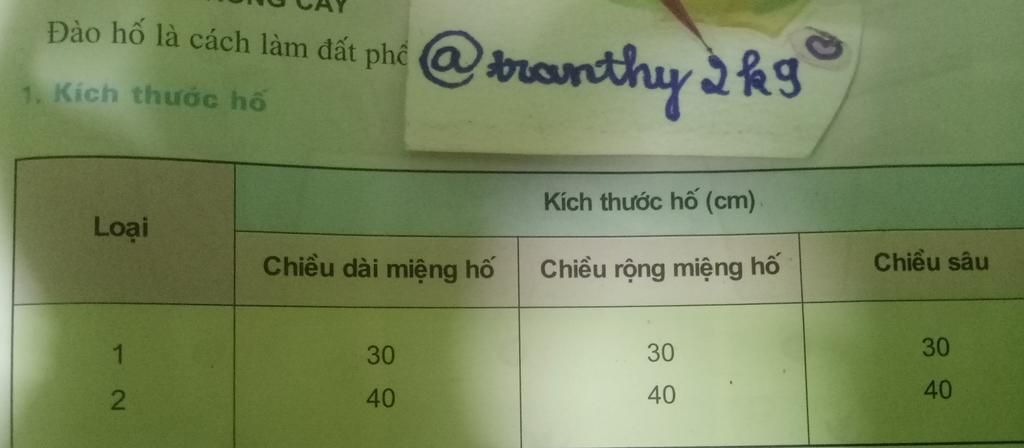 CÂY
Đào hố là cách làm đất phổ
@tranthy2kg
1. Kích thước hố
Loại
Kích thước hố (cm)
Chiều dài miệng hố
Chiều rộng miệng hố
Chiều sâu
1 30 30 30
2 40 40 40